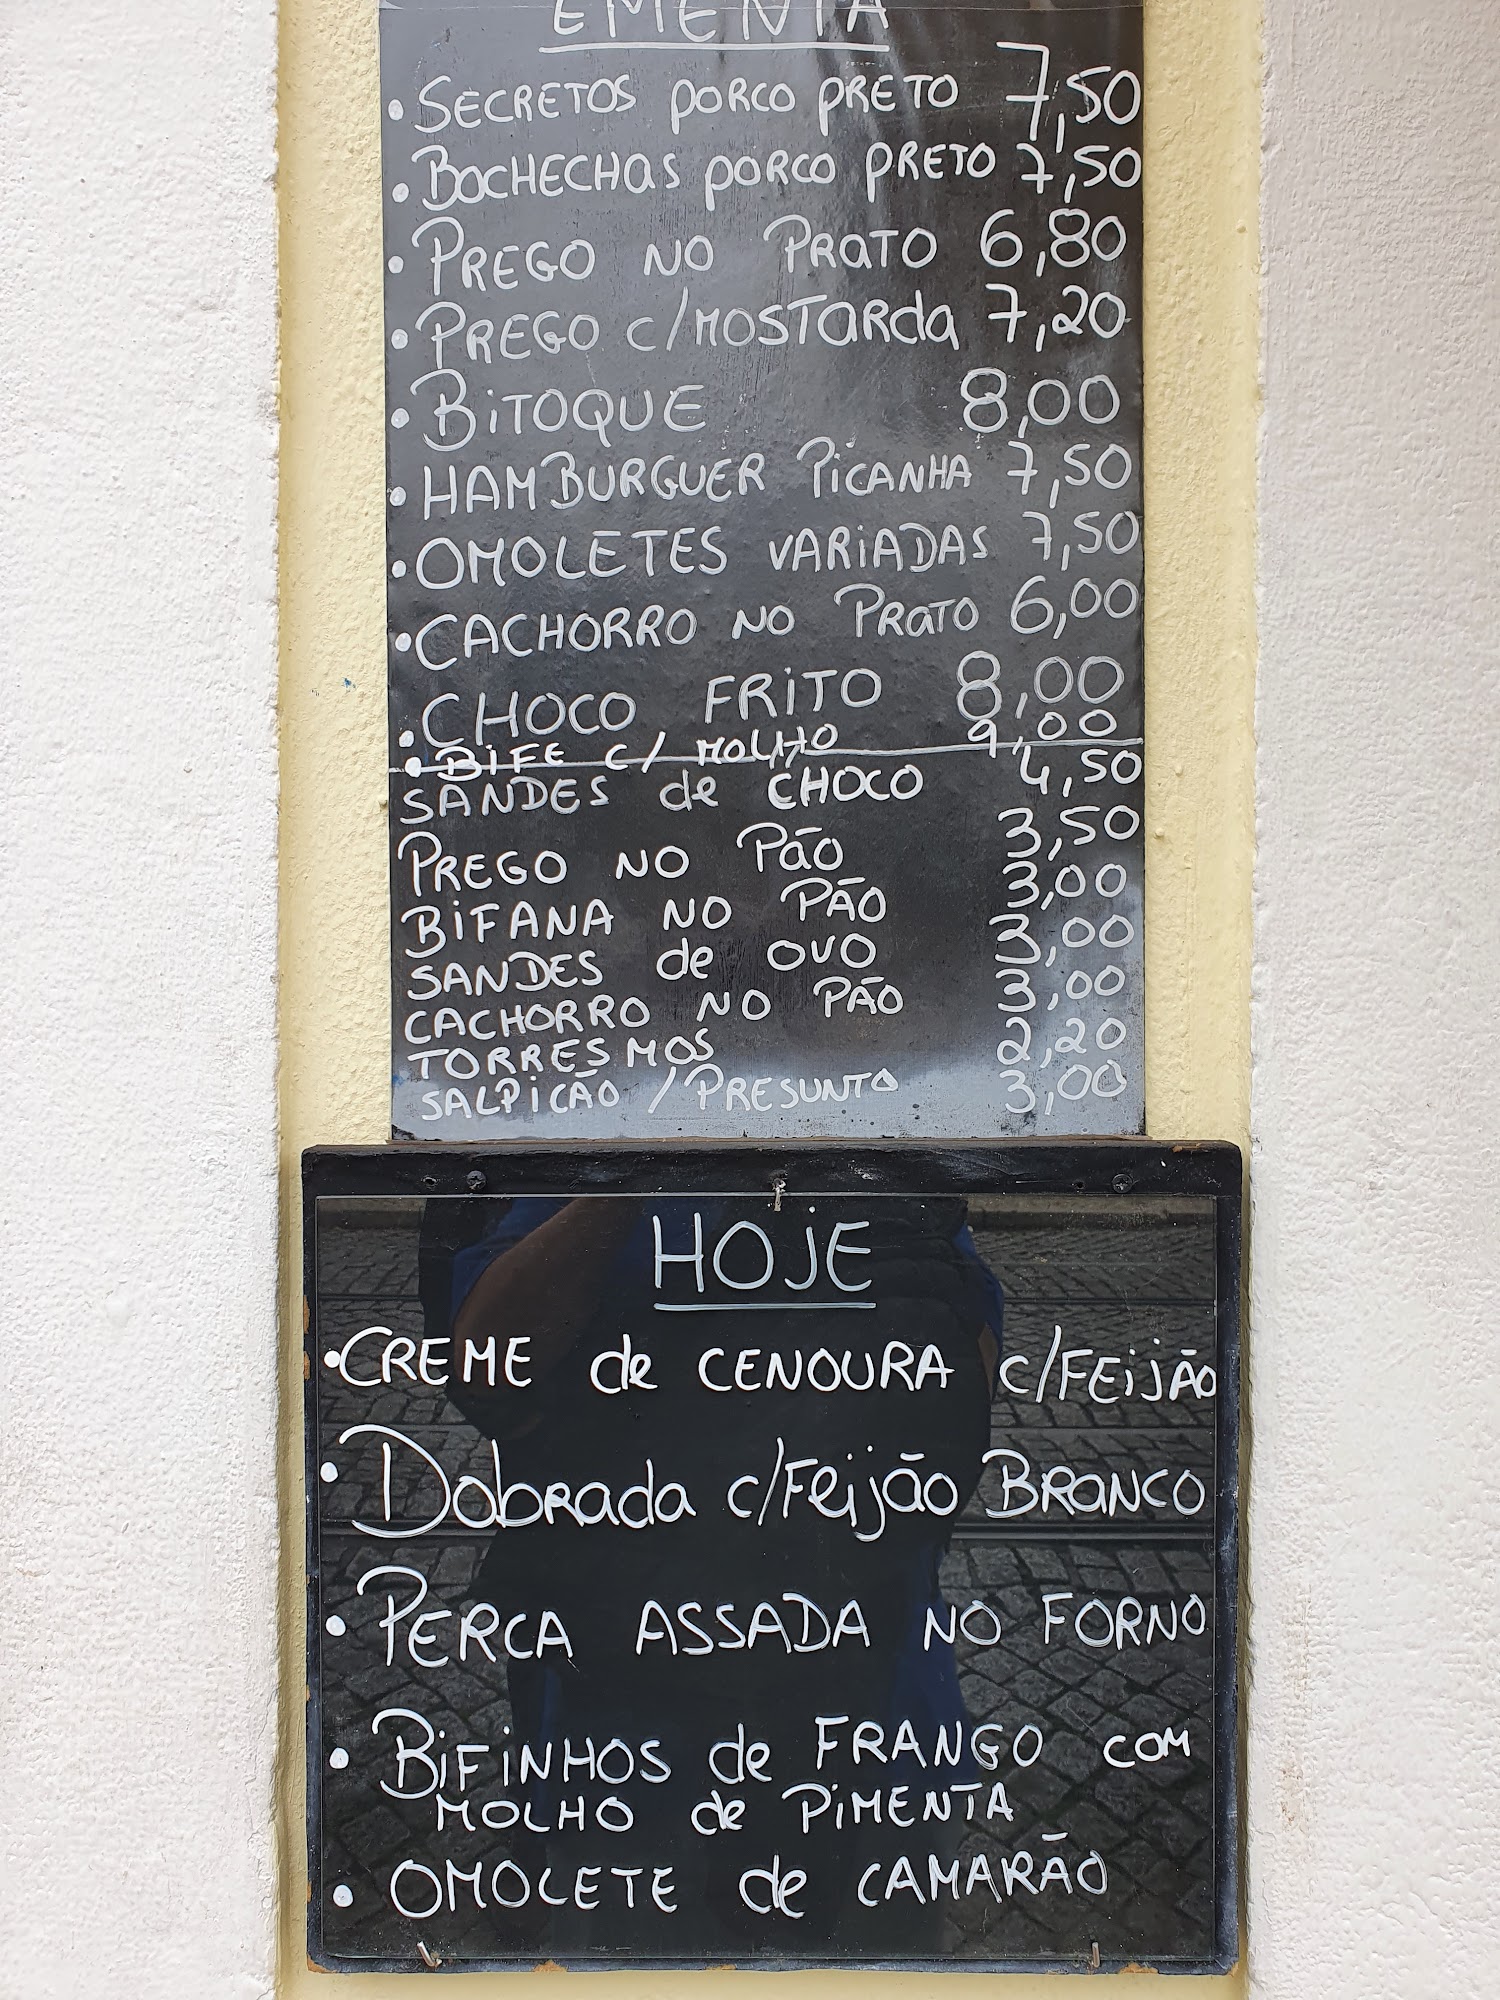 EMENTA
• SECRETOS PORCO PRETO 7,50
• BOCHECHAS PORCO PRETO 7,50
• PREGO NO PRATO 6,80
• PREGO C/MOSTARda 7,20
• BITOQUE 8,00
• HAMBURGUER PICANHA 7,50
• OMOLETES VARIADAS 7,50
• CACHORRO NO PRATO 6,00
• CHOCO FRITO 8,00
• BIFE C/ MOLHO 9,00
SANDES de CHOCO 4,50
PREGO NO PÃO 3,50
BIFANA NO PÃO 3,00
SANDES de OVO 3,00
CACHORRO NO PÃO 3,00
TORRESMOS 2,20
SALPICÃO / PRESUNTO 3,00
HOJE
• CREME de CENOURA C/FEIJÃO
• Dobrada c/Feijão BRANCO
• PERCA ASSADA NO FORNO
• BIFINHOS de FRANGO COM
MOLHO de PIMENTA
• OMOLETE de CAMARÃO